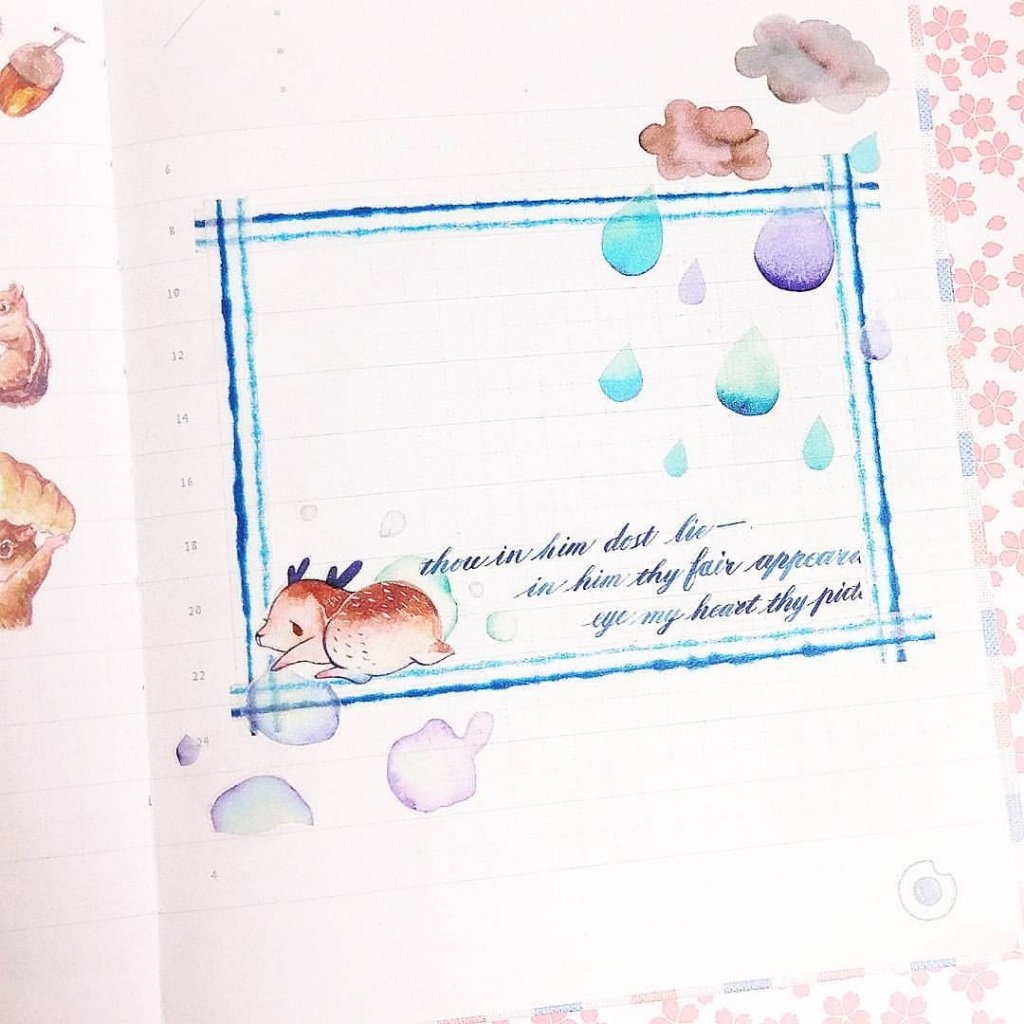 6
8
10
12
14
16
18
20
22
24
4
thou in him dost lie—
in him thy fair appeara
eye my heart thy pict